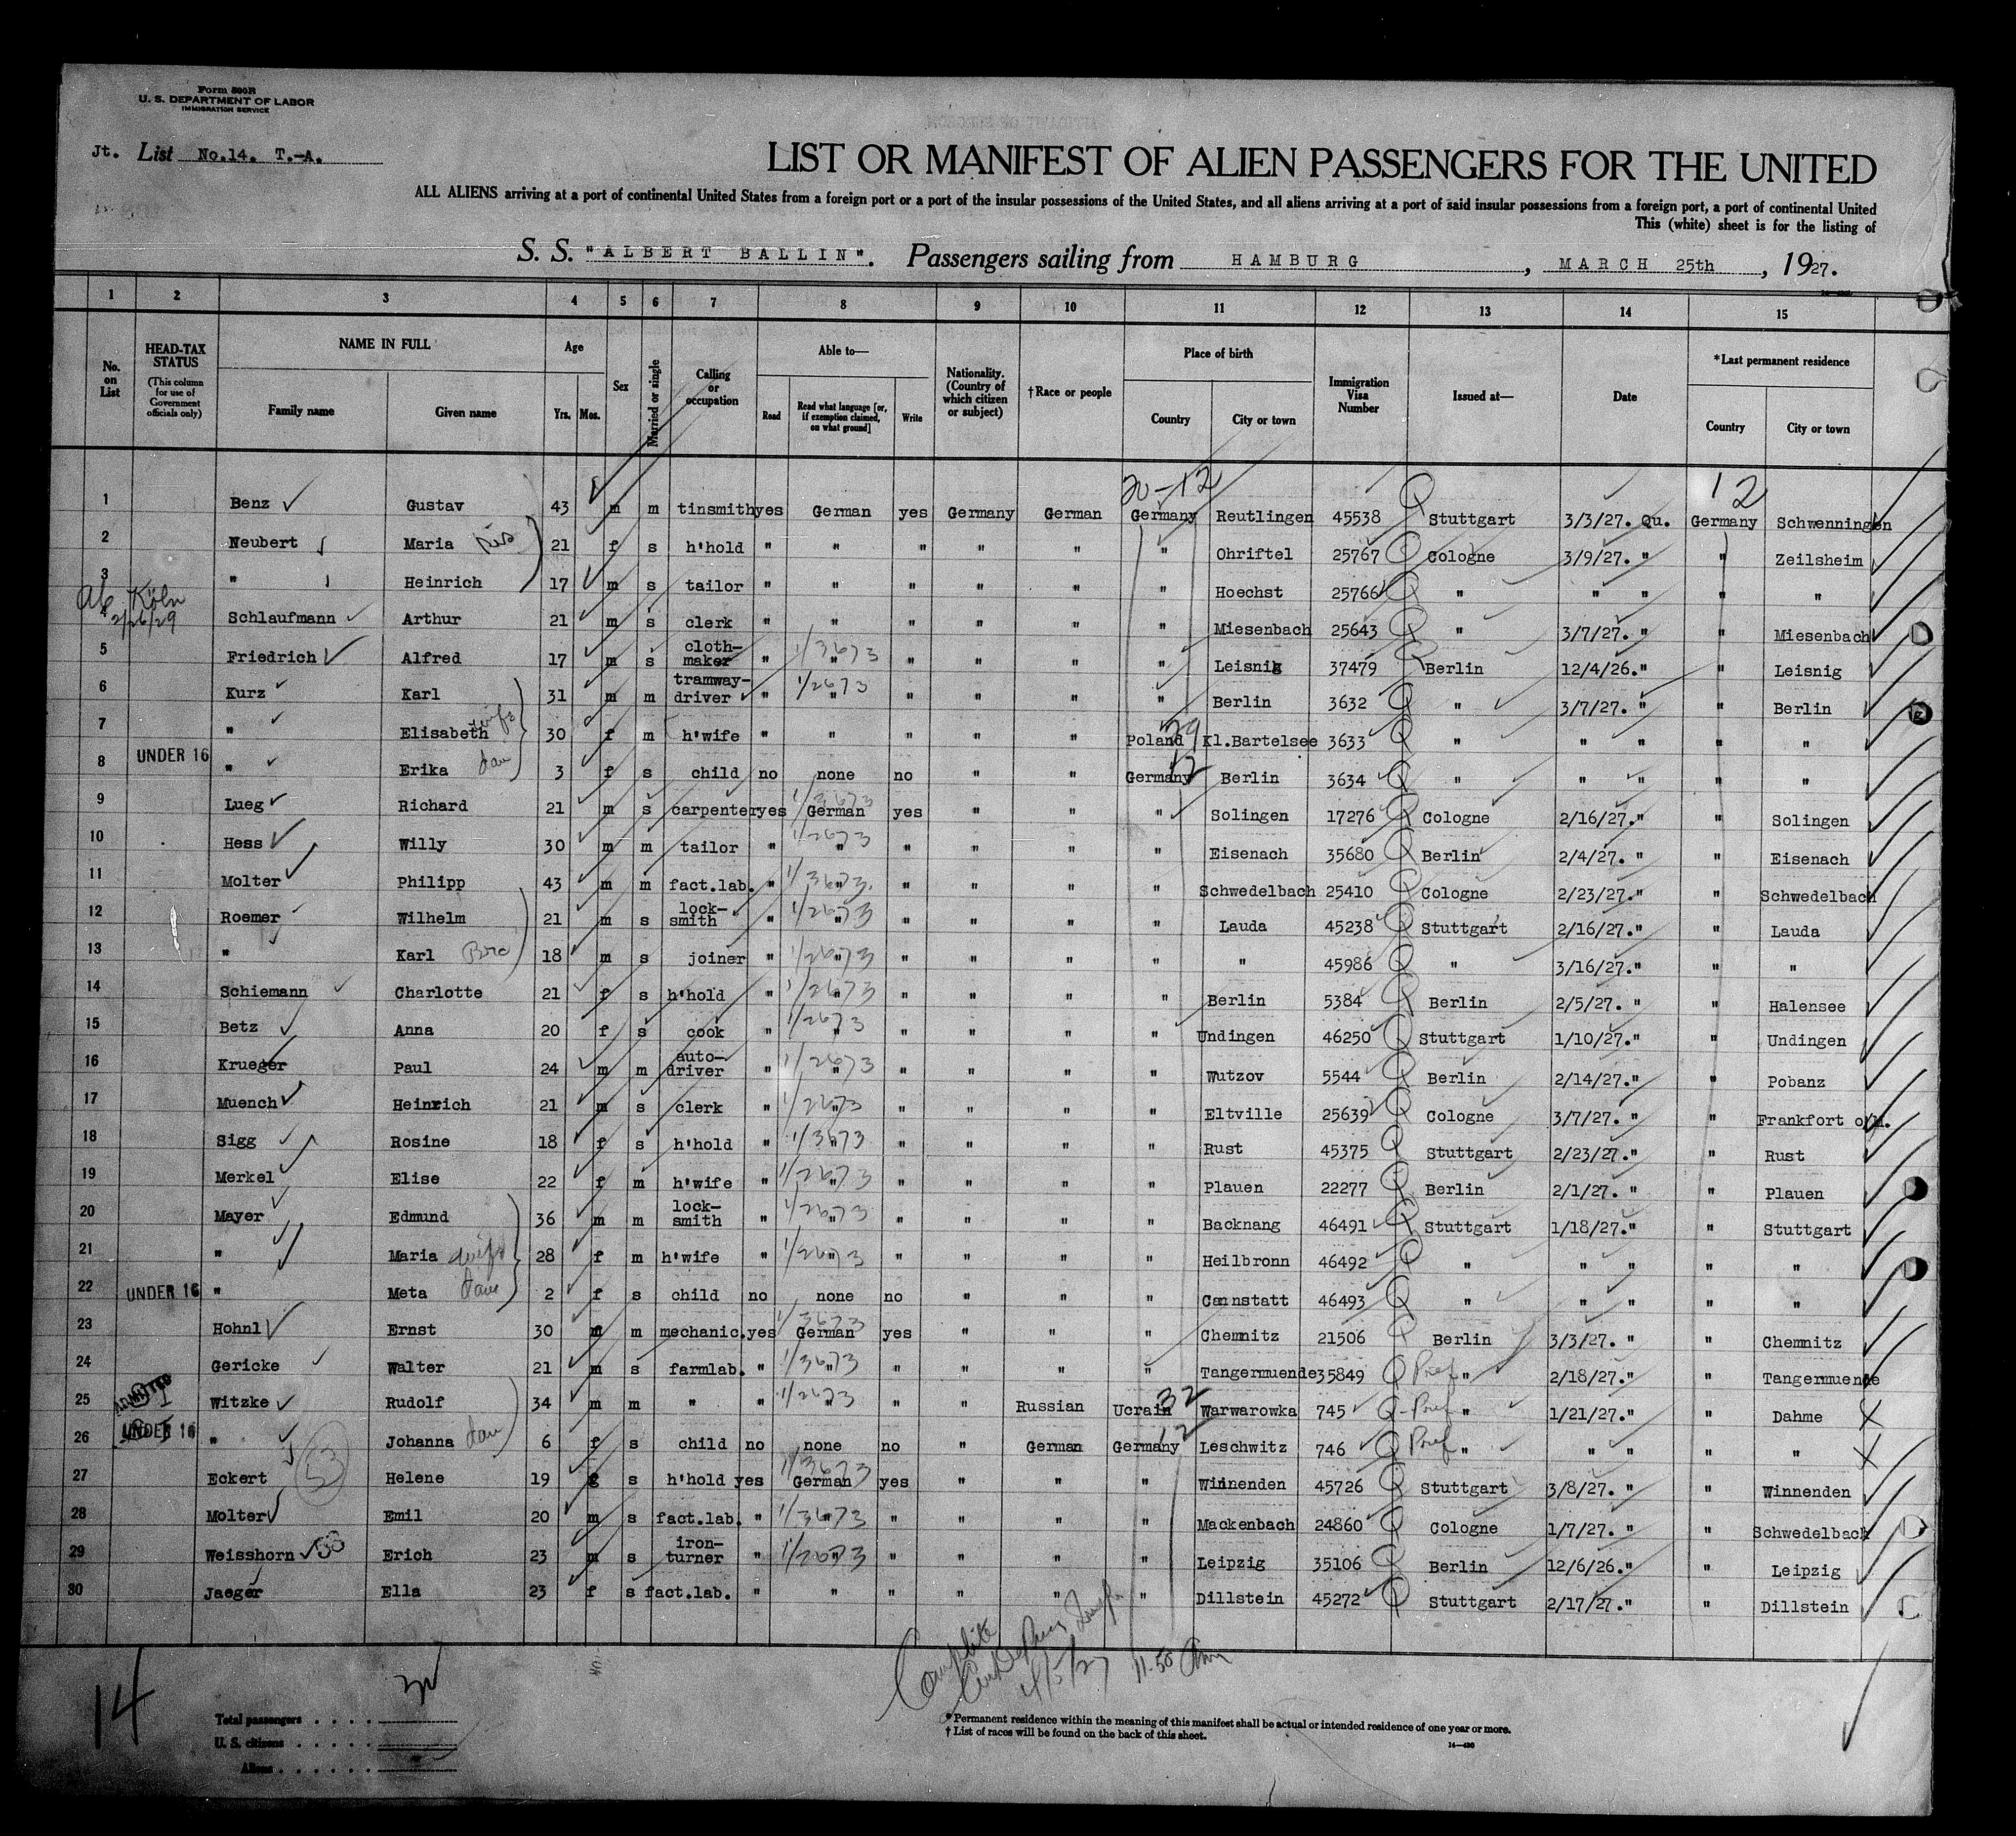 Form 500B
U. S. DEPARTMENT OF LABOR
IMMIGRATION SERVICE
Jt. List No.14. T.-A.
LIST OR MANIFEST OF ALIEN PASSENGERS FOR THE UNITED
ALL ALIENS arriving at a port of continental United States from a foreign port or a port of the insular possessions of the United States, and all aliens arriving at a port of said insular possessions from a foreign port, a port of continental United
This (white) sheet is for the listing of
S. S. "ALBERT BALLIN". Passengers sailing from HAMBURG, MARCH 25th, 1927.
1 2 3 4 5 6 7 8 9 10 11 12 13 14 15
No. on List
HEAD-TAX STATUS (This column for use of Government officials only)
NAME IN FULL
Family name Given name
Age
Yrs. Mos.
Sex
Married or single
Calling or occupation
Able to—
Read Read what language [or, if exemption claimed, on what ground] Write
Nationality. (Country of which citizen or subject)
† Race or people
Place of birth
Country City or town
Immigration Visa Number
Issued at—
Date
*Last permanent residence
Country City or town
20-12 12
1 Benz Gustav 43 m m tinsmith yes German yes Germany German Germany Reutlingen 45538 Q Stuttgart 3/3/27. Qu. Germany Schwenningen
2 Neubert Maria sis 21 f s h'hold " " " " " " Ohriftel 25767 Q Cologne 3/9/27. " " Zeilsheim
3 " Heinrich 17 m s tailor " " " " " " Hoechst 25766 Q " " " " "
Köln 2/26/29
4 Schlaufmann Arthur 21 m s clerk " " " " " " Miesenbach 25643 Q " 3/7/27. " " Miesenbach
5 Friedrich Alfred 17 m s cloth-maker " " 1/3673 " " " " Leisnig 37479 Q Berlin 12/4/26." " Leisnig
6 Kurz Karl 31 m m tramway-driver " " 1/2673 " " " " Berlin 3632 Q " 3/7/27. " " Berlin
7 " Elisabeth wife 30 f m h'wife " " " " " Poland 29 Kl.Bartelsee 3633 Q " " " " "
8 UNDER 16 " Erika dau 3 f s child no none no " " Germany 12 Berlin 3634 Q " " " " "
9 Lueg Richard 21 m s carpenter yes German 1/3673 yes " " " Solingen 17276 Q Cologne 2/16/27." " Solingen
10 Hess Willy 30 m m tailor " " 1/2673 " " " " Eisenach 35680 Q Berlin 2/4/27. " " Eisenach
11 Molter Philipp 43 m m fact.lab. " " 1/3673 " " " " Schwedelbach 25410 Q Cologne 2/23/27." " Schwedelbach
12 Roemer Wilhelm 21 m s lock-smith " " 1/2673 " " " " Lauda 45238 Q Stuttgart 2/16/27." " Lauda
13 " Karl Bro 18 m s joiner " " 1/2673 " " " " " 45986 Q " 3/16/27." " "
14 Schiemann Charlotte 21 f s h'hold " " 1/2673 " " " " Berlin 5384 Q Berlin 2/5/27. " " Halensee
15 Betz Anna 20 f s cook " " 1/2673 " " " " Undingen 46250 Q Stuttgart 1/10/27." " Undingen
16 Krueger Paul 24 m m auto-driver " " 1/2673 " " " " Wutzov 5544 Q Berlin 2/14/27." " Pobanz
17 Muench Heinrich 21 m s clerk " " 1/2673 " " " " Eltville 25639 Q Cologne 3/7/27. " " Frankfort o/M.
18 Sigg Rosine 18 f s h'hold " " 1/3673 " " " " Rust 45375 Q Stuttgart 2/23/27." " Rust
19 Merkel Elise 22 f m h'wife " " 1/2673 " " " " Plauen 22277 Q Berlin 2/1/27. " " Plauen
20 Mayer Edmund 36 m m lock-smith " " 1/2673 " " " " Backnang 46491 Q Stuttgart 1/18/27." " Stuttgart
21 " Maria wife 28 f m h'wife " " 1/2673 " " " " Heilbronn 46492 Q " " " " "
22 UNDER 16 " Meta dau 2 f s child no none no " " " Cannstatt 46493 Q " " " " "
23 Hohnl Ernst 30 m m mechanic. yes German 1/3673 yes " " " Chemnitz 21506 Q Berlin 3/3/27. " " Chemnitz
24 Gericke Walter 21 m s farmlab. " " 1/3673 " " " " Tangermuende 35849 Q Pref " 2/18/27." " Tangermuende
25 ADMITTED Witzke Rudolf 34 m m " " " 1/2673 " " Russian Ucrain 32 Warwarowka 745 Q-Pref " 1/21/27." " Dahme X
26 UNDER 16 " Johanna dau 6 f s child no none no " German Germany 12 Leschwitz 746 Q Pref " " " " " X
27 Eckert 53 Helene 19 f s h'hold yes German 1/3673 yes " " " Winnenden 45726 Q Stuttgart 3/8/27. " " Winnenden
28 Molter Emil 20 m s fact.lab. " " 1/3673 " " " " Mackenbach 24860 Q Cologne 1/7/27. " " Schwedelbach
29 Weisshorn Erich 23 m s iron-turner " " 1/2673 " " " " Leipzig 35106 Q Berlin 12/6/26." " Leipzig
30 Jaeger Ella 23 f s fact.lab. " " " " " " Dillstein 45272 Q Stuttgart 2/17/27." " Dillstein
Complete
4/5/27 11.50
14
Total passengers
U. S. citizens
Aliens
* Permanent residence within the meaning of this manifest shall be actual or intended residence of one year or more.
† List of races will be found on the back of this sheet.
14—430